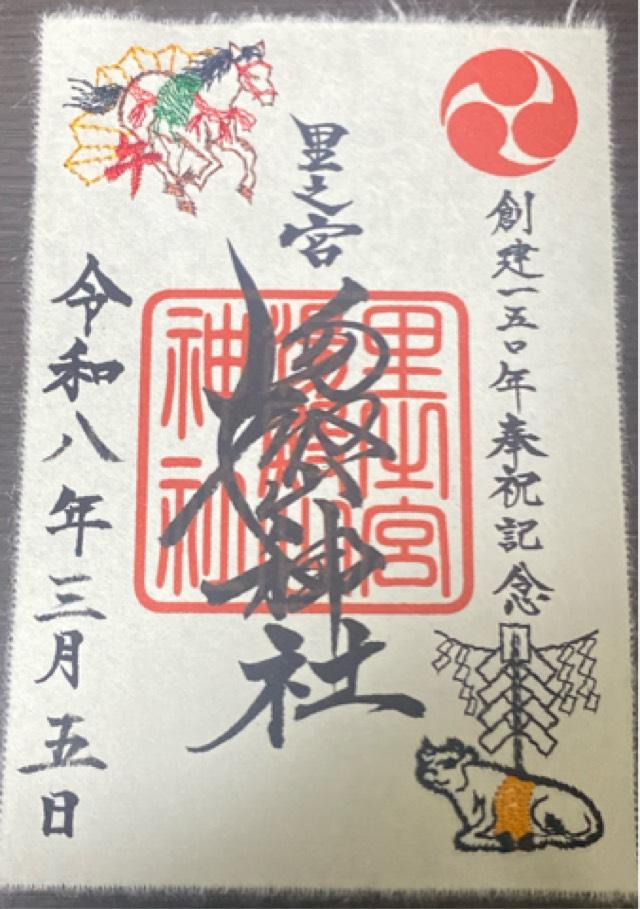 創建一五〇年奉祝記念
里之宮
湯殿山神社
里之宮
湯殿山
神社
令和八年三月五日